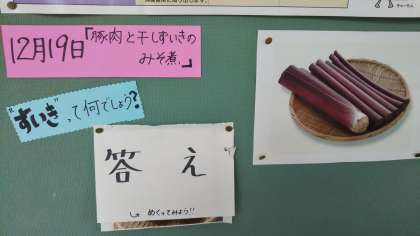 12月19日「豚肉と干しずいきの
みそ煮」
"ずいき"って何でしょう?
答え
めくってみよう!!